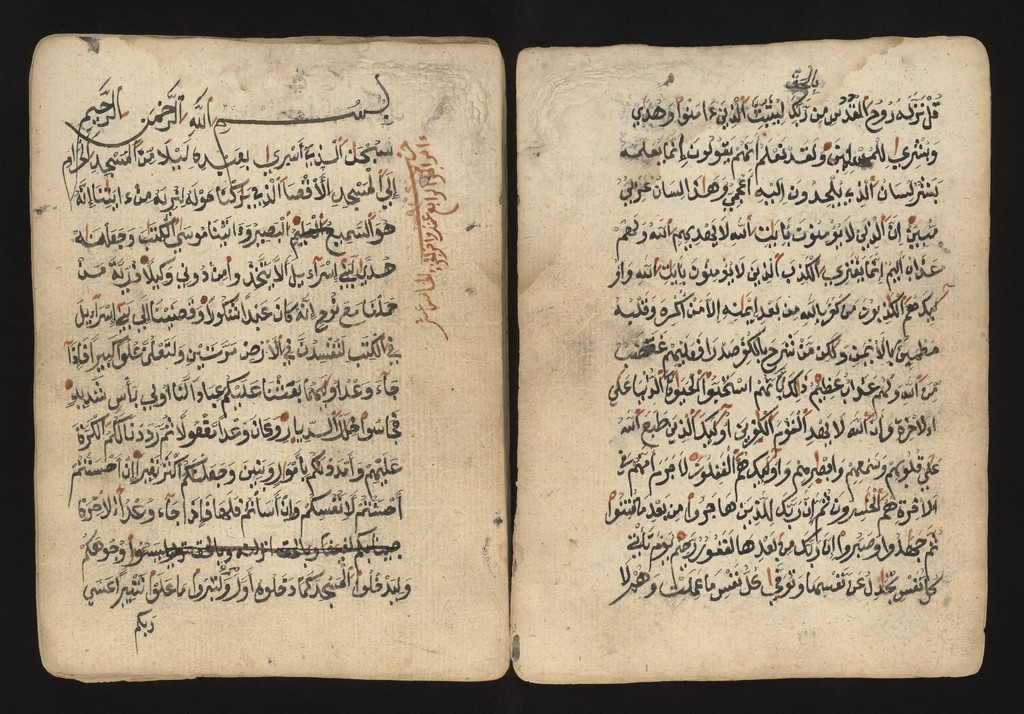 بالحق
قل نزله روح القدس من ربك ليثبت الذين ءامنوا وهدي
وبشري للمسلمين ولقد نعلم انهم يقولون انما يعلمه
بشر لسان الذي يلحدون اليه اعجمي وهذا لسان عربي
مبين ان الذين لا يؤمنون بايت الله لا يهديهم الله ولهم
عذاب اليم انما يفتري الكذب الذين لا يؤمنون بايت الله واو
ليك هم الكذبون من كفر بالله من بعد ايمنه الا من اكره وقلبه
مطمين بالايمن ولكن من شرح بالكفر صدرا فعليهم غضب
من الله ولهم عذاب عظيم ذلك بانهم استحبوا الحيوة الدنيا علي
الاخرة وان الله لا يهد القوم الكفرين اوليك الذين طبع الله
علي قلوبهم وسمعهم وابصرهم واوليك هم الغفلون لا جرم انهم في
الاخرة هم الخسرون ثم ان ربك للذين هاجروا من بعد ما فتنوا
ثم جهدوا وصبروا ان ربك من بعدها لغفور رحيم يوم تاتي
كل نفس تجدل عن نفسها وتوفي كل نفس ما عملت وهم لا
بسم الله الرحمن الرحيم
سبحن الذي اسري بعبده ليلا من المسجد الحرام
الي المسجد الاقصا الذي بركنا حوله لنريه من ءايتنا انه
هو السميع العليم البصير وءاتينا موسي الكتب وجعلنه
هدي لبني اسراءيل الا تتخذوا من دوني وكيلا ذرية من
حملنا مع نوح انه كان عبدا شكورا وقضينا الي بني اسراءيل
في الكتب لتفسدن في الارض مرتين ولتعلن علوا كبيرا فاذا
جاء وعد اوليهما بعثنا عليكم عبادا لنا اولي بأس شديد
فجاسوا خلل الديار وكان وعدا مفعولا ثم رددنا لكم الكرة
عليهم وامددنكم بامول وبنين وجعلنكم اكثر نفيرا ان احسنتم
احسنتم لانفسكم وان اسأتم فلها فاذا جاء وعد الاخرة
ليسئوا وجوهكم
وليدخلوا المسجد كما دخلوه اول وليتبروا ما علوا تتبيرا عسي
ربكم